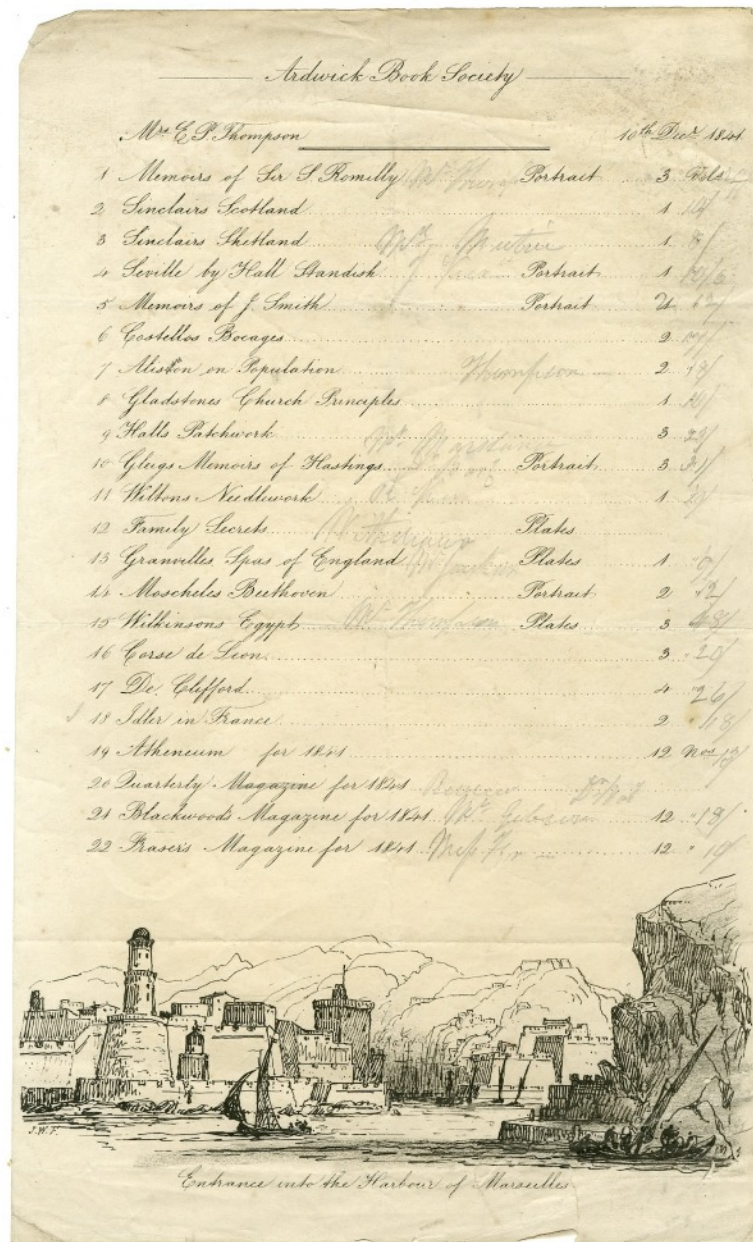 Ardwick Book Society
Mrs E. P. Thompson 10th Decr 1841
1 Memoirs of Sir S. Romilly Portrait 3 Vols
2 Sinclairs Scotland 1
3 Sinclairs Shetland 1 8/
4 Seville by Hall Standish Portrait 1 10/6
5 Memoirs of J. Smith Portrait
6 Costellos Bocages 2
7 Alison on Population Thompson 2 18/
8 Gladstones Church Principles 1
9 Halls Patchwork 3 23/
10 Gleigs Memoirs of Hastings Portrait 3
11 Wiltons Needlework 1
12 Family Secrets Plates
13 Granvilles Spas of England Plates 1 9/
14 Moscheles Beethoven Portrait 2 12/
15 Wilkinsons Egypt Mr Thompson Plates 3 48/
16 Corse de Leon 3 20/
17 De Clifford 4 26/
18 Idler in France 2 18/
19 Atheneum for 1841 12 Nos
20 Quarterly Magazine for 1841 Review
21 Blackwoods Magazine for 1841 Mr Gibson 12 18/
22 Frasers Magazine for 1841 Miss 12
J.W.F.
Entrance into the Harbour of Marseilles